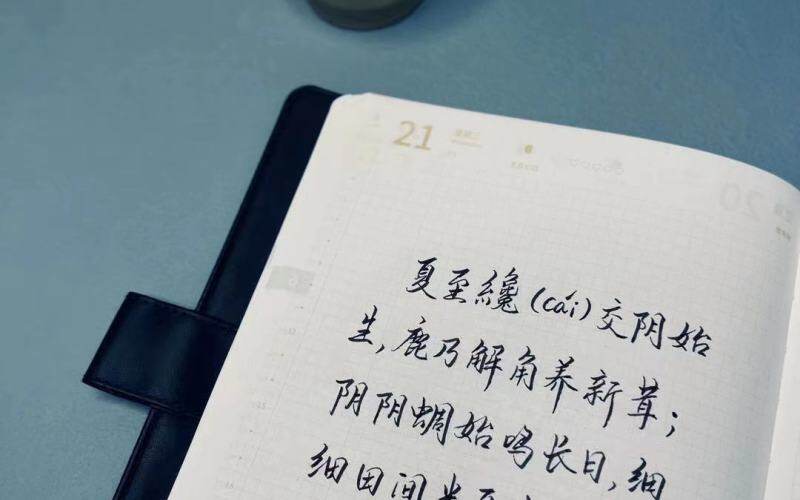 21
夏至纔(cái)交阴始
生,鹿乃解角养新茸;
阴阴蜩始鸣长日,细
细田间半夏